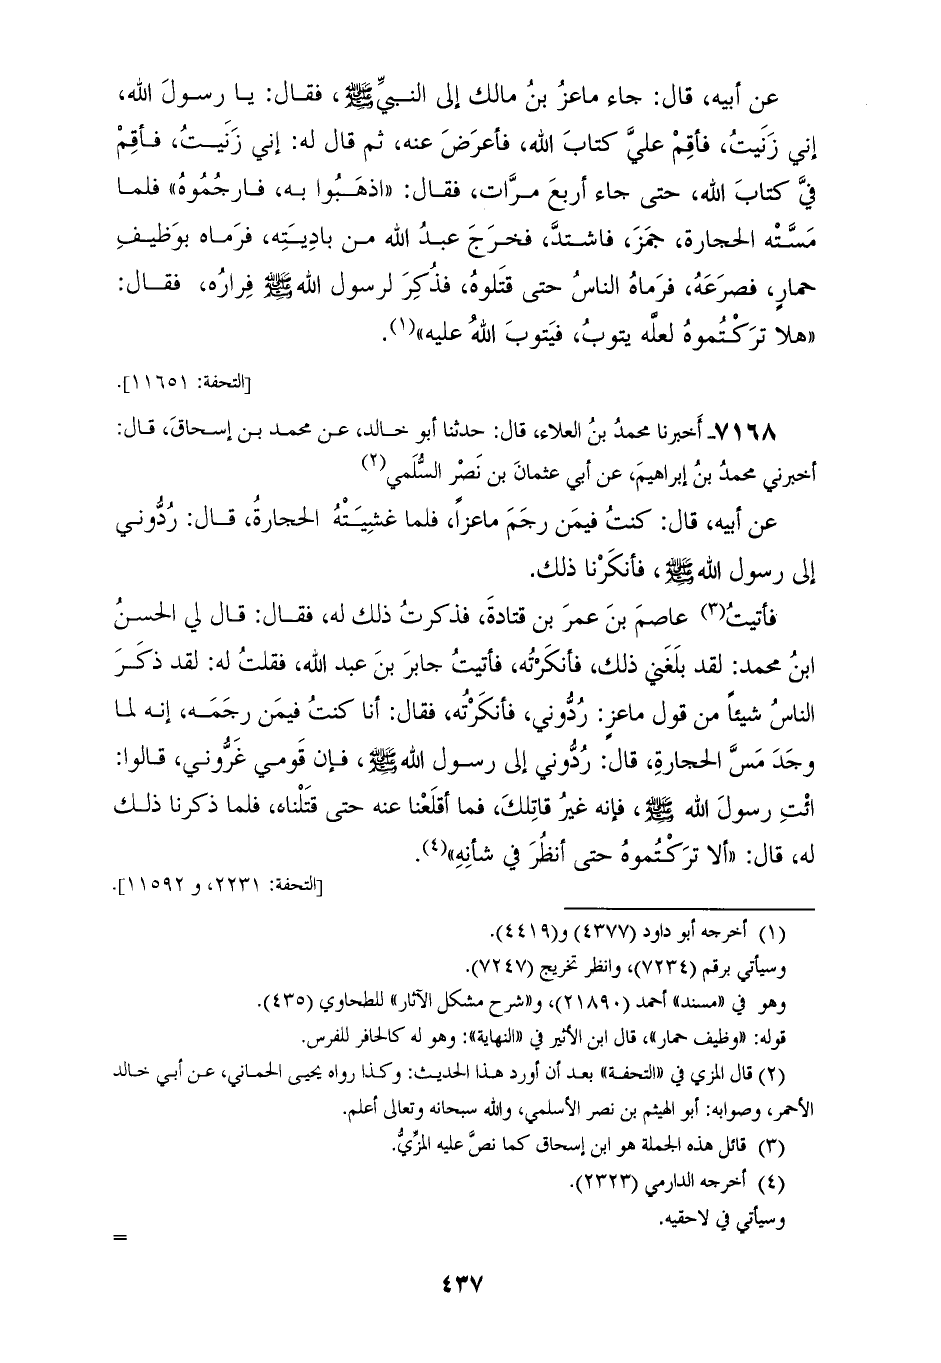 عن أبيه، قال: جاء ماعزُ بنُ مالك إلى النبيِّ ﷺ، فقال: يا رسولَ الله،
إني زَنَيتُ، فأقِمْ عليَّ كتابَ الله، فأعرَضَ عنه، ثم قال له: إني زَنَيتُ، فأقِمْ
فيَّ كتابَ الله، حتى جاء أربعَ مرَّات، فقال: «اذهَبُوا به، فارجُمُوهُ» فلما
مَسَّتْه الحجارة، جَمَزَ، فاشتدَّ، فخرَجَ عبدُ الله من بادِيَتِه، فرَماه بوَظيفِ
حمارٍ، فصرَعَهُ، فرَماهُ الناسُ حتى قتَلوهُ، فذُكِرَ لرسول الله ﷺ فِرارُه، فقال:
«هلا ترَكْتُموهُ لعلَّه يتوبُ، فيَتوبَ اللهُ عليه»(١).
[التحفة: ١١٦٥١].
٧١٦٨ـ أَخبرنا محمدُ بنُ العلاء، قال: حدثنا أبو خالد، عن محمد بن إسحاقَ، قال:
أخبرني محمدُ بنُ إبراهيمَ، عن أبي عثمانَ بن نَصْر السُّلَمي(٢)
عن أبيه، قال: كنتُ فيمَن رجَمَ ماعزاً، فلما غشِيَتْهُ الحجارةُ، قال: رُدُّوني
إلى رسول الله ﷺ، فأنكَرْنا ذلك.
فأتيتُ(٣) عاصمَ بنَ عمرَ بن قتادةَ، فذكرتُ ذلك له، فقال: قال لي الحسنُ
ابنُ محمد: لقد بلَغَني ذلك، فأنكَرْتُه، فأتيتُ جابرَ بنَ عبد الله، فقلتُ له: لقد ذكَرَ
الناسُ شيئاً من قول ماعزٍ: رُدُّوني، فأنكَرْتُه، فقال: أنا كنتُ فيمَن رجمَه، إنه لما
وجَدَ مَسَّ الحجارةِ، قال: رُدُّوني إلى رسول الله ﷺ، فإن قَومي غَرُّوني، قالوا:
ائْتِ رسولَ الله ﷺ، فإنه غيرُ قاتِلكَ، فما أقلَعْنا عنه حتى قتَلْناه، فلما ذكرنا ذلك
له، قال: «ألا ترَكْتُموهُ حتى أنظُرَ في شأنِه»(٤).
[التحفة: ٢٢٣١، و ١١٥٩٢].
(١) أخرجه أبو داود (٤٣٧٧) و(٤٤١٩).
وسيأتي برقم (٧٢٣٤)، وانظر تخريج (٧٢٤٧).
وهو في «مسند» أحمد (٢١٨٩٠)، و«شرح مشكل الآثار» للطحاوي (٤٣٥).
قوله: «وظيف حمار»، قال ابن الأثير في «النهاية»: وهو له كالحافر للفرس.
(٢) قال المزي في «التحفة» بعد أن أورد هذا الحديث: وكذا رواه يحيى الحماني، عن أبي خالد
الأحمر، وصوابه: أبو الهيثم بن نصر الأسلمي، والله سبحانه وتعالى أعلم.
(٣) قائل هذه الجملة هو ابن إسحاق كما نصَّ عليه المزِّيُّ.
(٤) أخرجه الدارمي (٢٣٢٣).
وسيأتي في لاحقيه.
=
٤٣٧